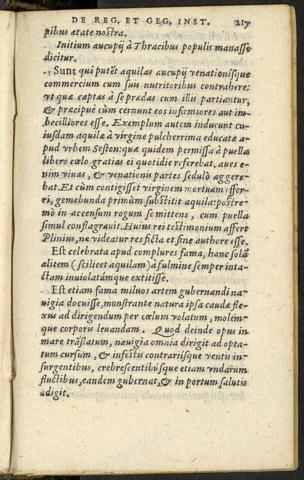 DE REG. ET GEG. INST. 217
pibus ætate nostra.
Initium aucupij à Thracibus populis manasse
dicitur.
Sunt qui putēt aquilas aucupij venationisque
commercium cum suis nutritoribus contrahere:
vt qua captas à se prædas cum illis partiantur,
& præcipuè cùm cernunt eos infirmiores aut im-
becilliores esse. Exemplum autem inducunt cu-
iusdam aquilæ à virgine pulcherrima educatæ a-
pud vrbem Seston: quæ quidem permissa à puella
libero cœlo gratias ei quotidie referebat. aues e-
nim viuas, & venationis partes sedulò aggere-
bat. Et cùm contigisset virginem mortuam effer-
ri, gemebunda primùm substitit aquila: postre-
mò in accensum rogum se mittens, cum puella
simul conflagrauit. Huius rei testimonium affert
Plinius, ne videatur res ficta et sine authore esse.
Est celebrata apud complures fama, hanc solā
alitem (scilicet aquilam) à fulmine semper inta-
ctam inuiolatámque extitisse.
Est etiam fama miluos artem gubernandi na-
uigia docuisse, monstrante natura ipsa cauda fle-
xus ad dirigendum per cœlum volatum, molém-
que corporis leuandam. Quod deinde opus in
mare trāslatum, nauigia omnia dirigit ad opta-
tum cursum, & infestis contrariisque ventis in-
surgentibus, crebrescentibúsque etiam vndarum
fluctibus, eandem gubernat, & in portum salutis
adigit.